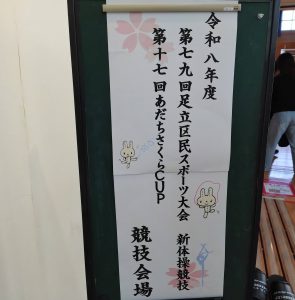 令和八年度
第七九回足立区民スポーツ大会 新体操競技
第十七回あだちさくらCUP
競技会場